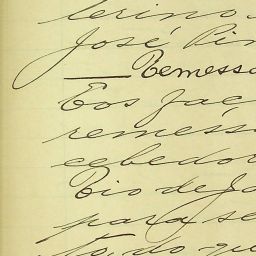 lerino
José Pin
— Remessa
Eos faç
reméss
cebedor
Rio de Ja
para se
to, do qu